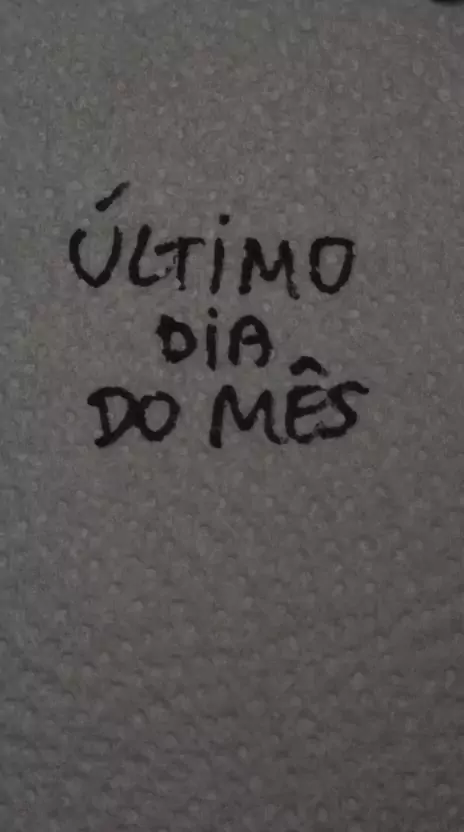 ÚLTiMO
DiA
DO MÊS